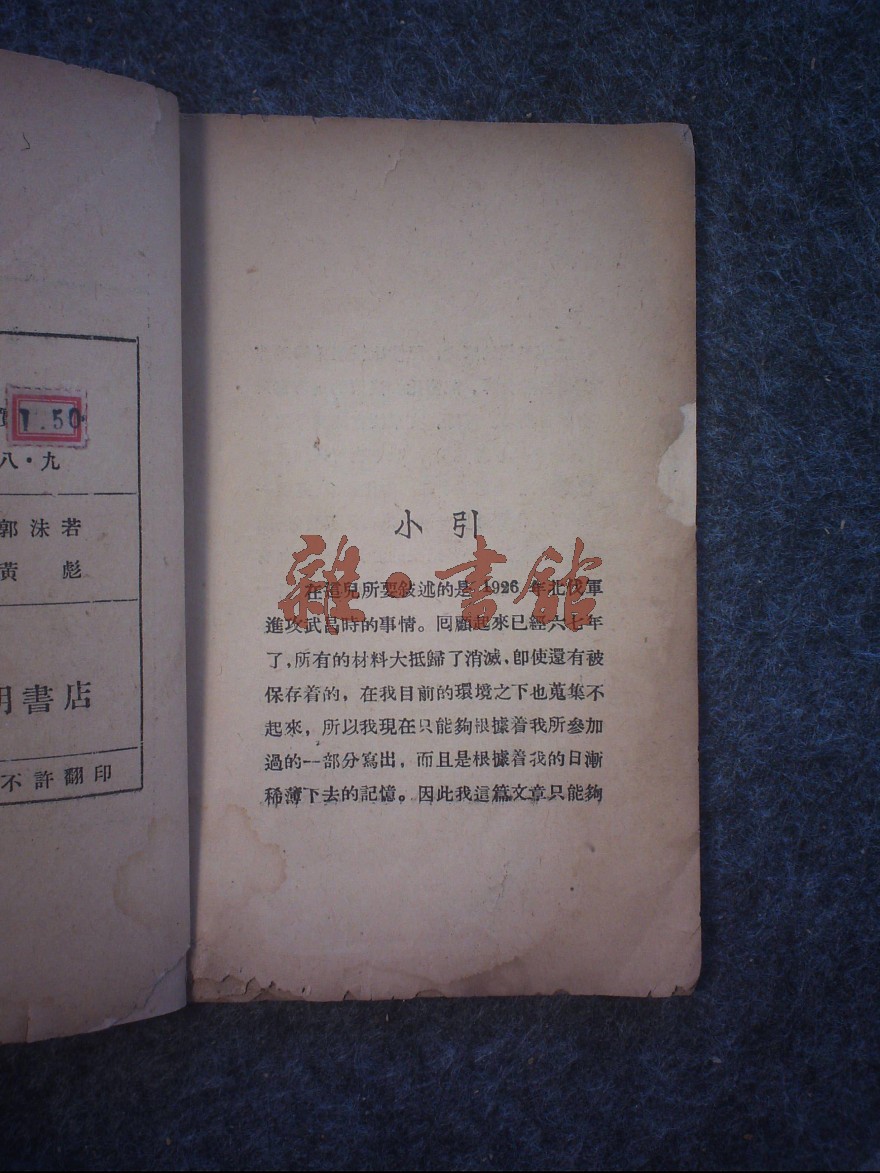 1.50
八·九
郭沫若
黃彪
明書店
不許翻印
小引
雜·書館
在這兒所要敍述的是1926年北伐軍
進攻武昌時的事情。回顧起來已經六七年
了，所有的材料大抵歸了消滅，卽使還有被
保存着的，在我目前的環境之下也蒐集不
起來，所以我現在只能夠根據着我所參加
過的一部分寫出，而且是根據着我的日漸
稀薄下去的記憶。因此我這篇文章只能夠